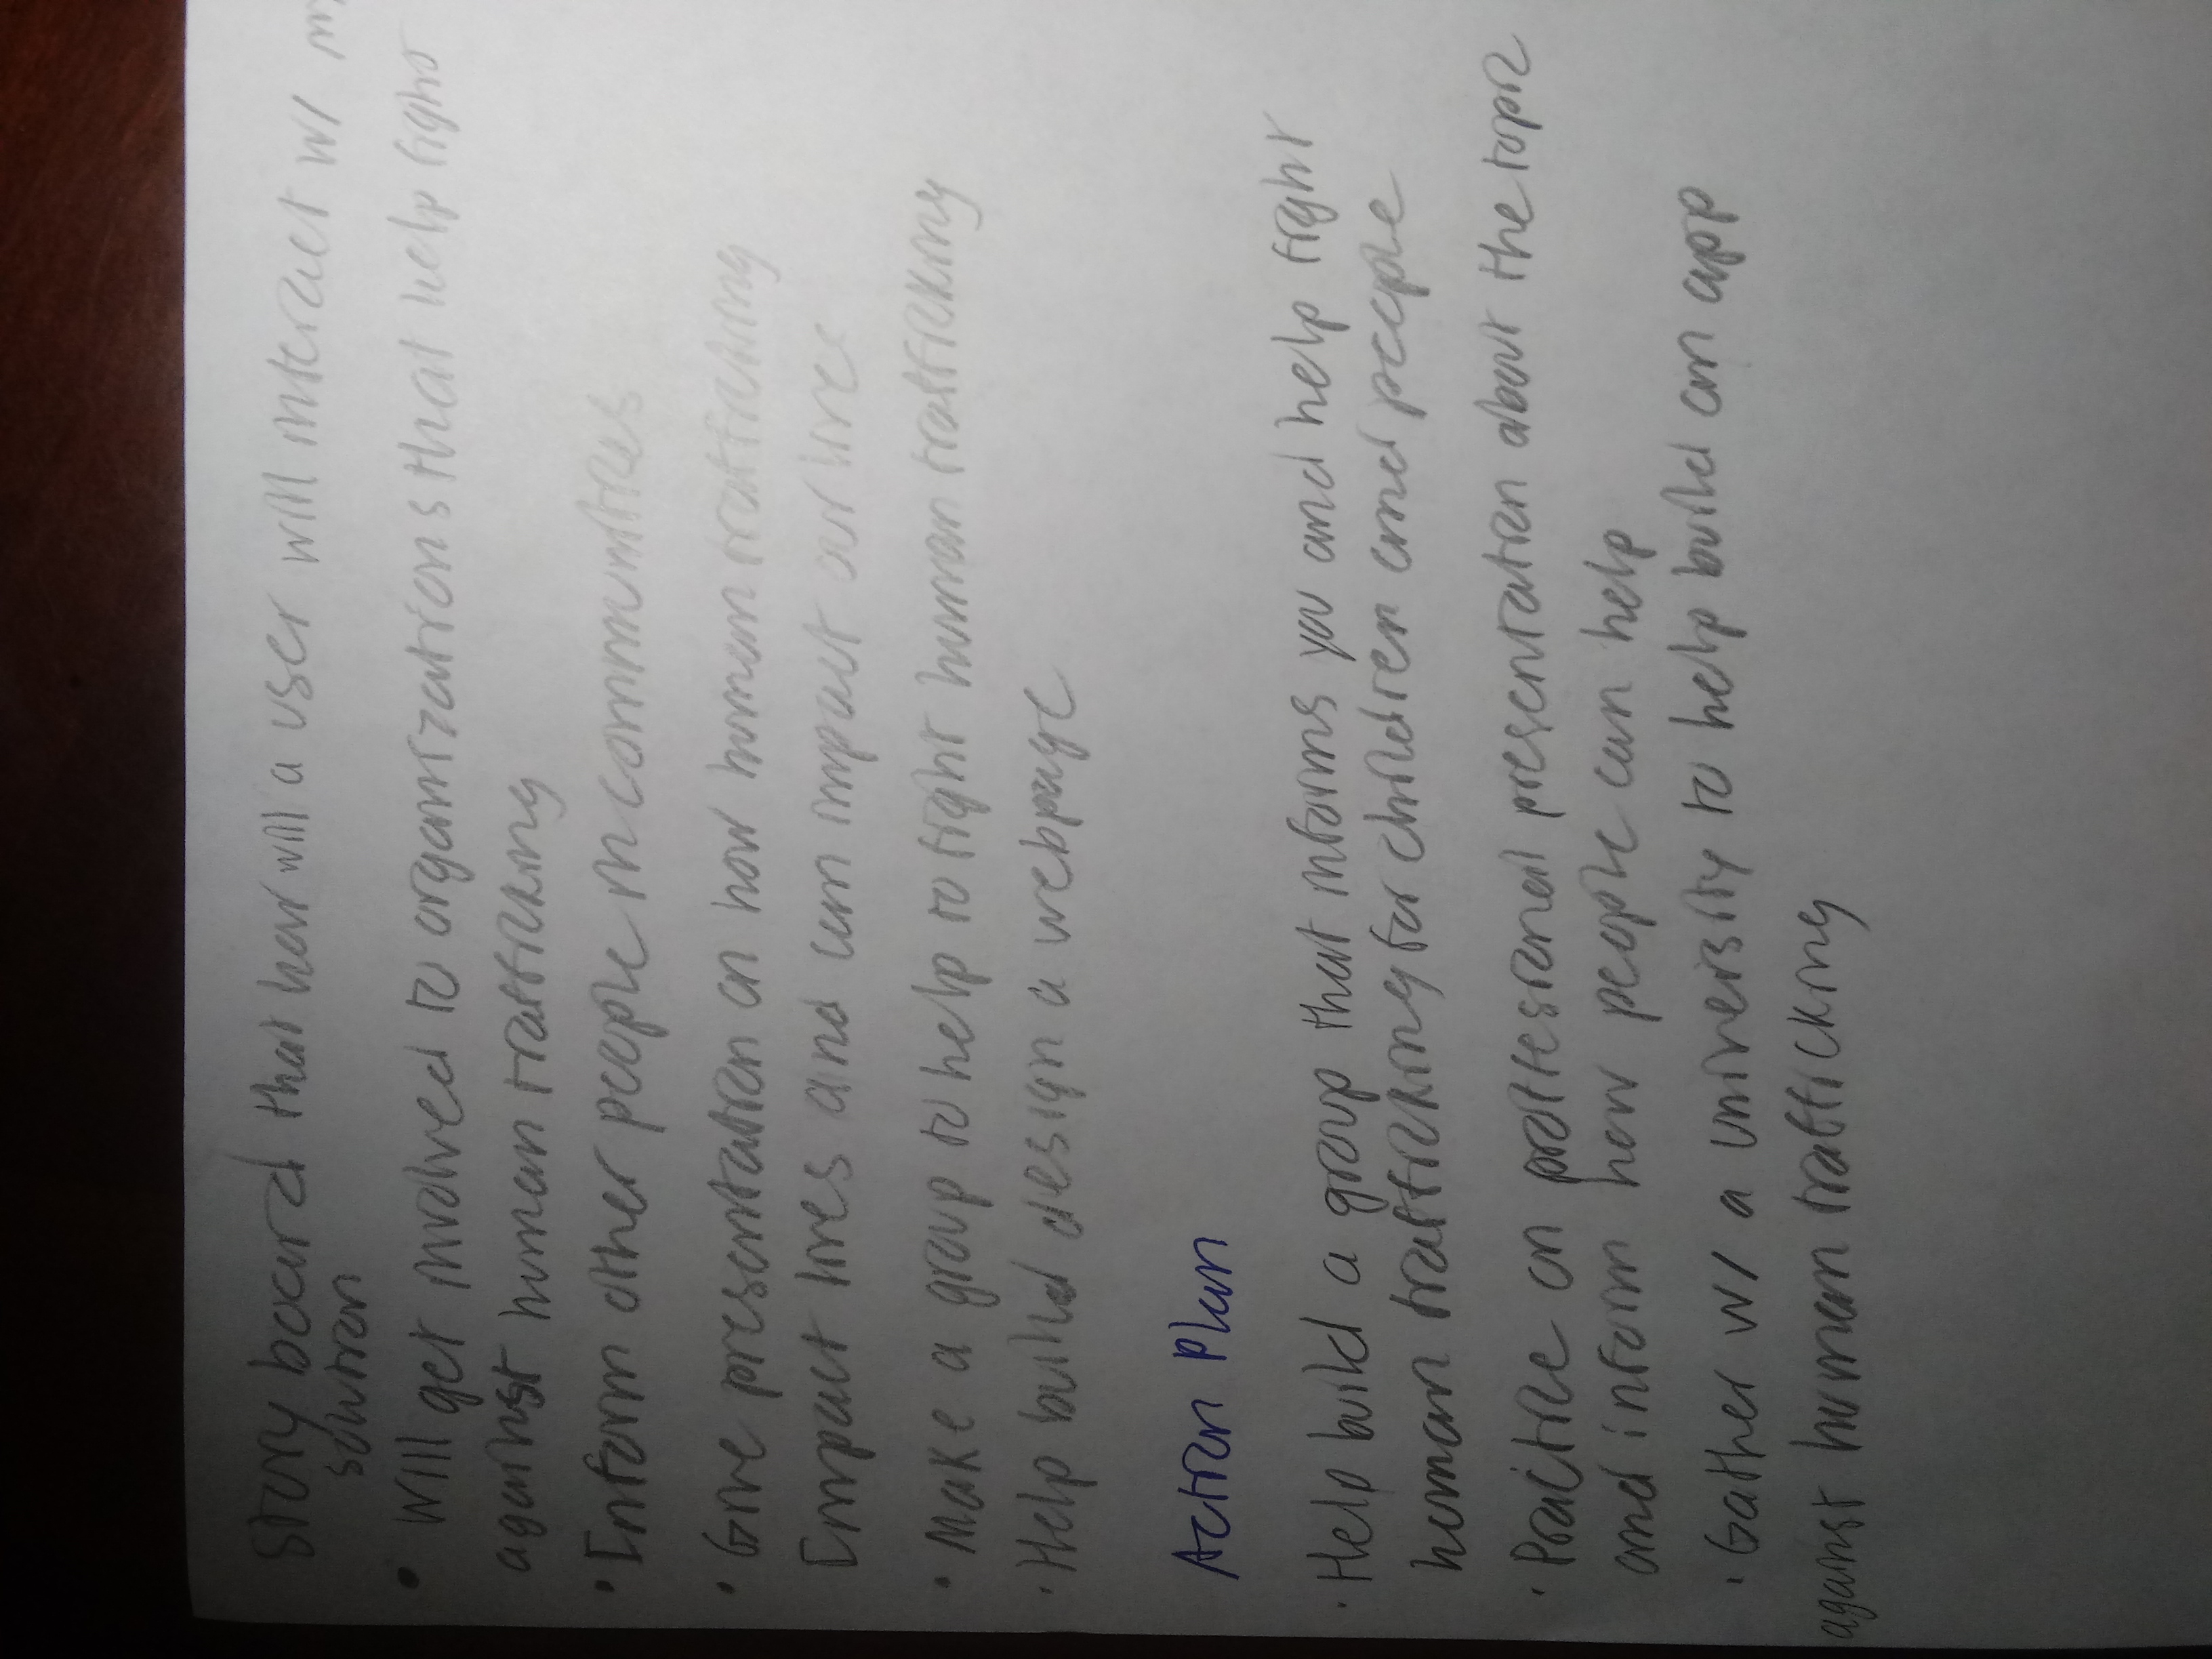 Story board that how will a user will interact w/ my
solution
• Will get involved to organizations that help fight
against human trafficking
• Inform other people in communities
• Give presentation on how human trafficking
Impact lives and can impact our lives
• Make a group to help to fight human trafficking
• Help build design a webpage
Action Plan
• Help build a group that informs you and help fight
human trafficking for children and people
• Practice on proffesional presentation about the topic
and inform how people can help
• Gather w/ a university to help build an app
against human trafficking